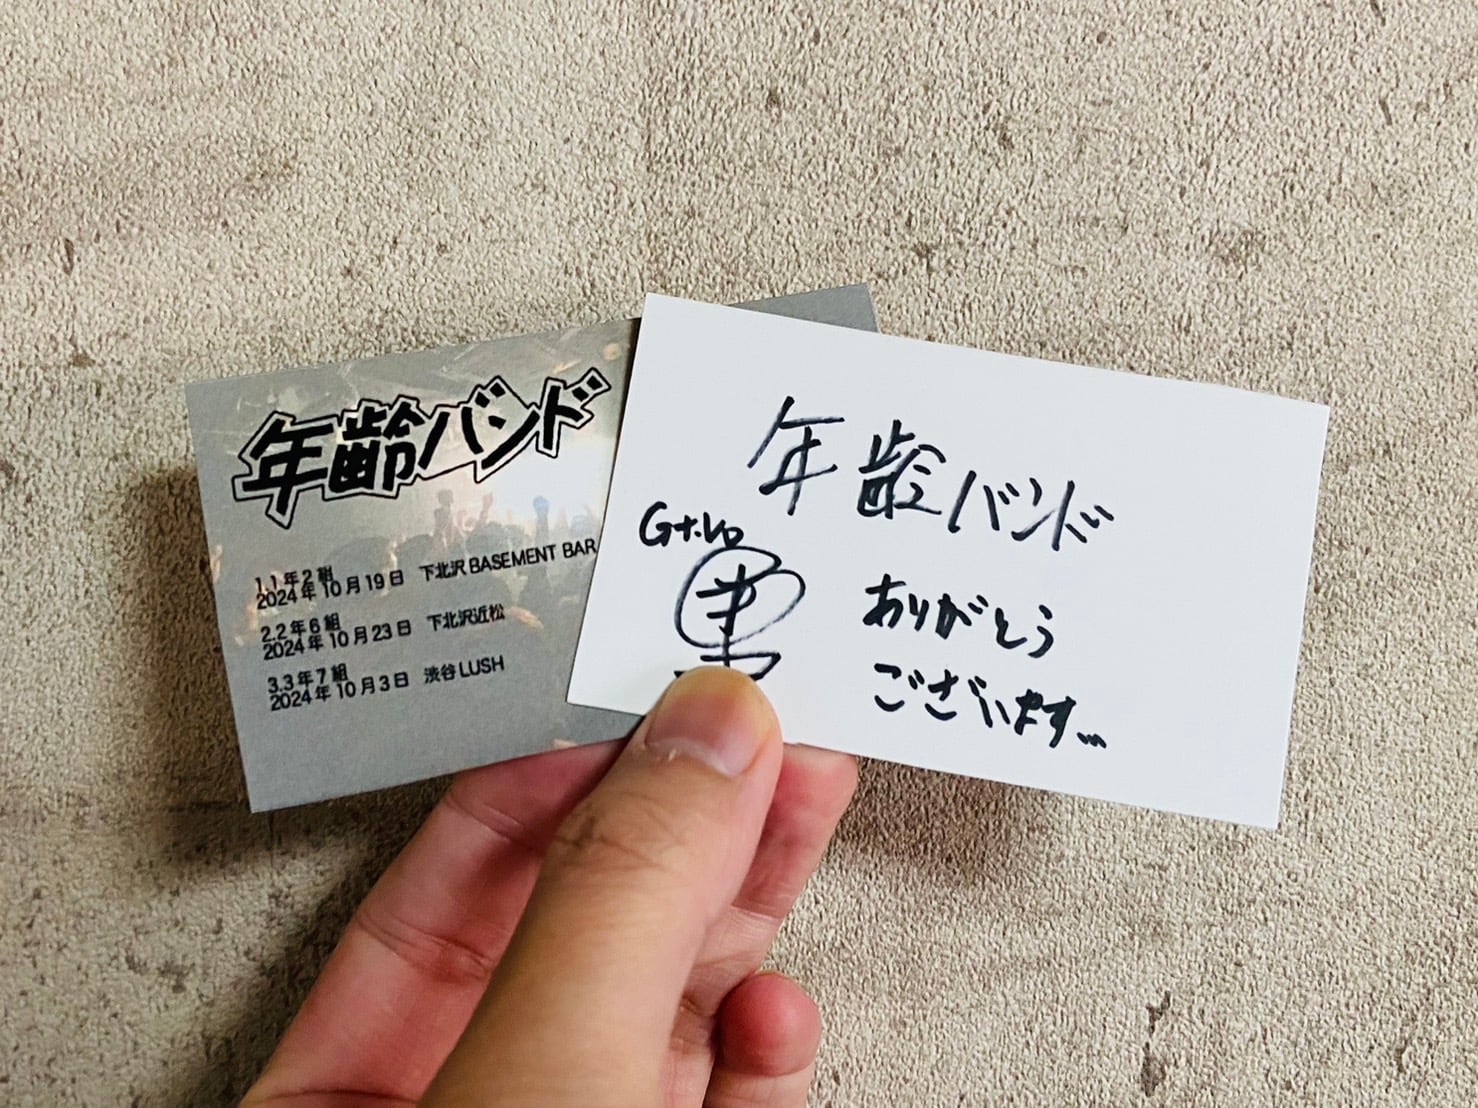 年齢バンド
1.1年2組
2024年10月19日 下北沢BASEMENT BAR
2.2年6組
2024年10月23日 下北沢近松
3.3年7組
2024年10月3日 渋谷LUSH
年齢バンド
Gt.Vo
ありがとう
ございます...